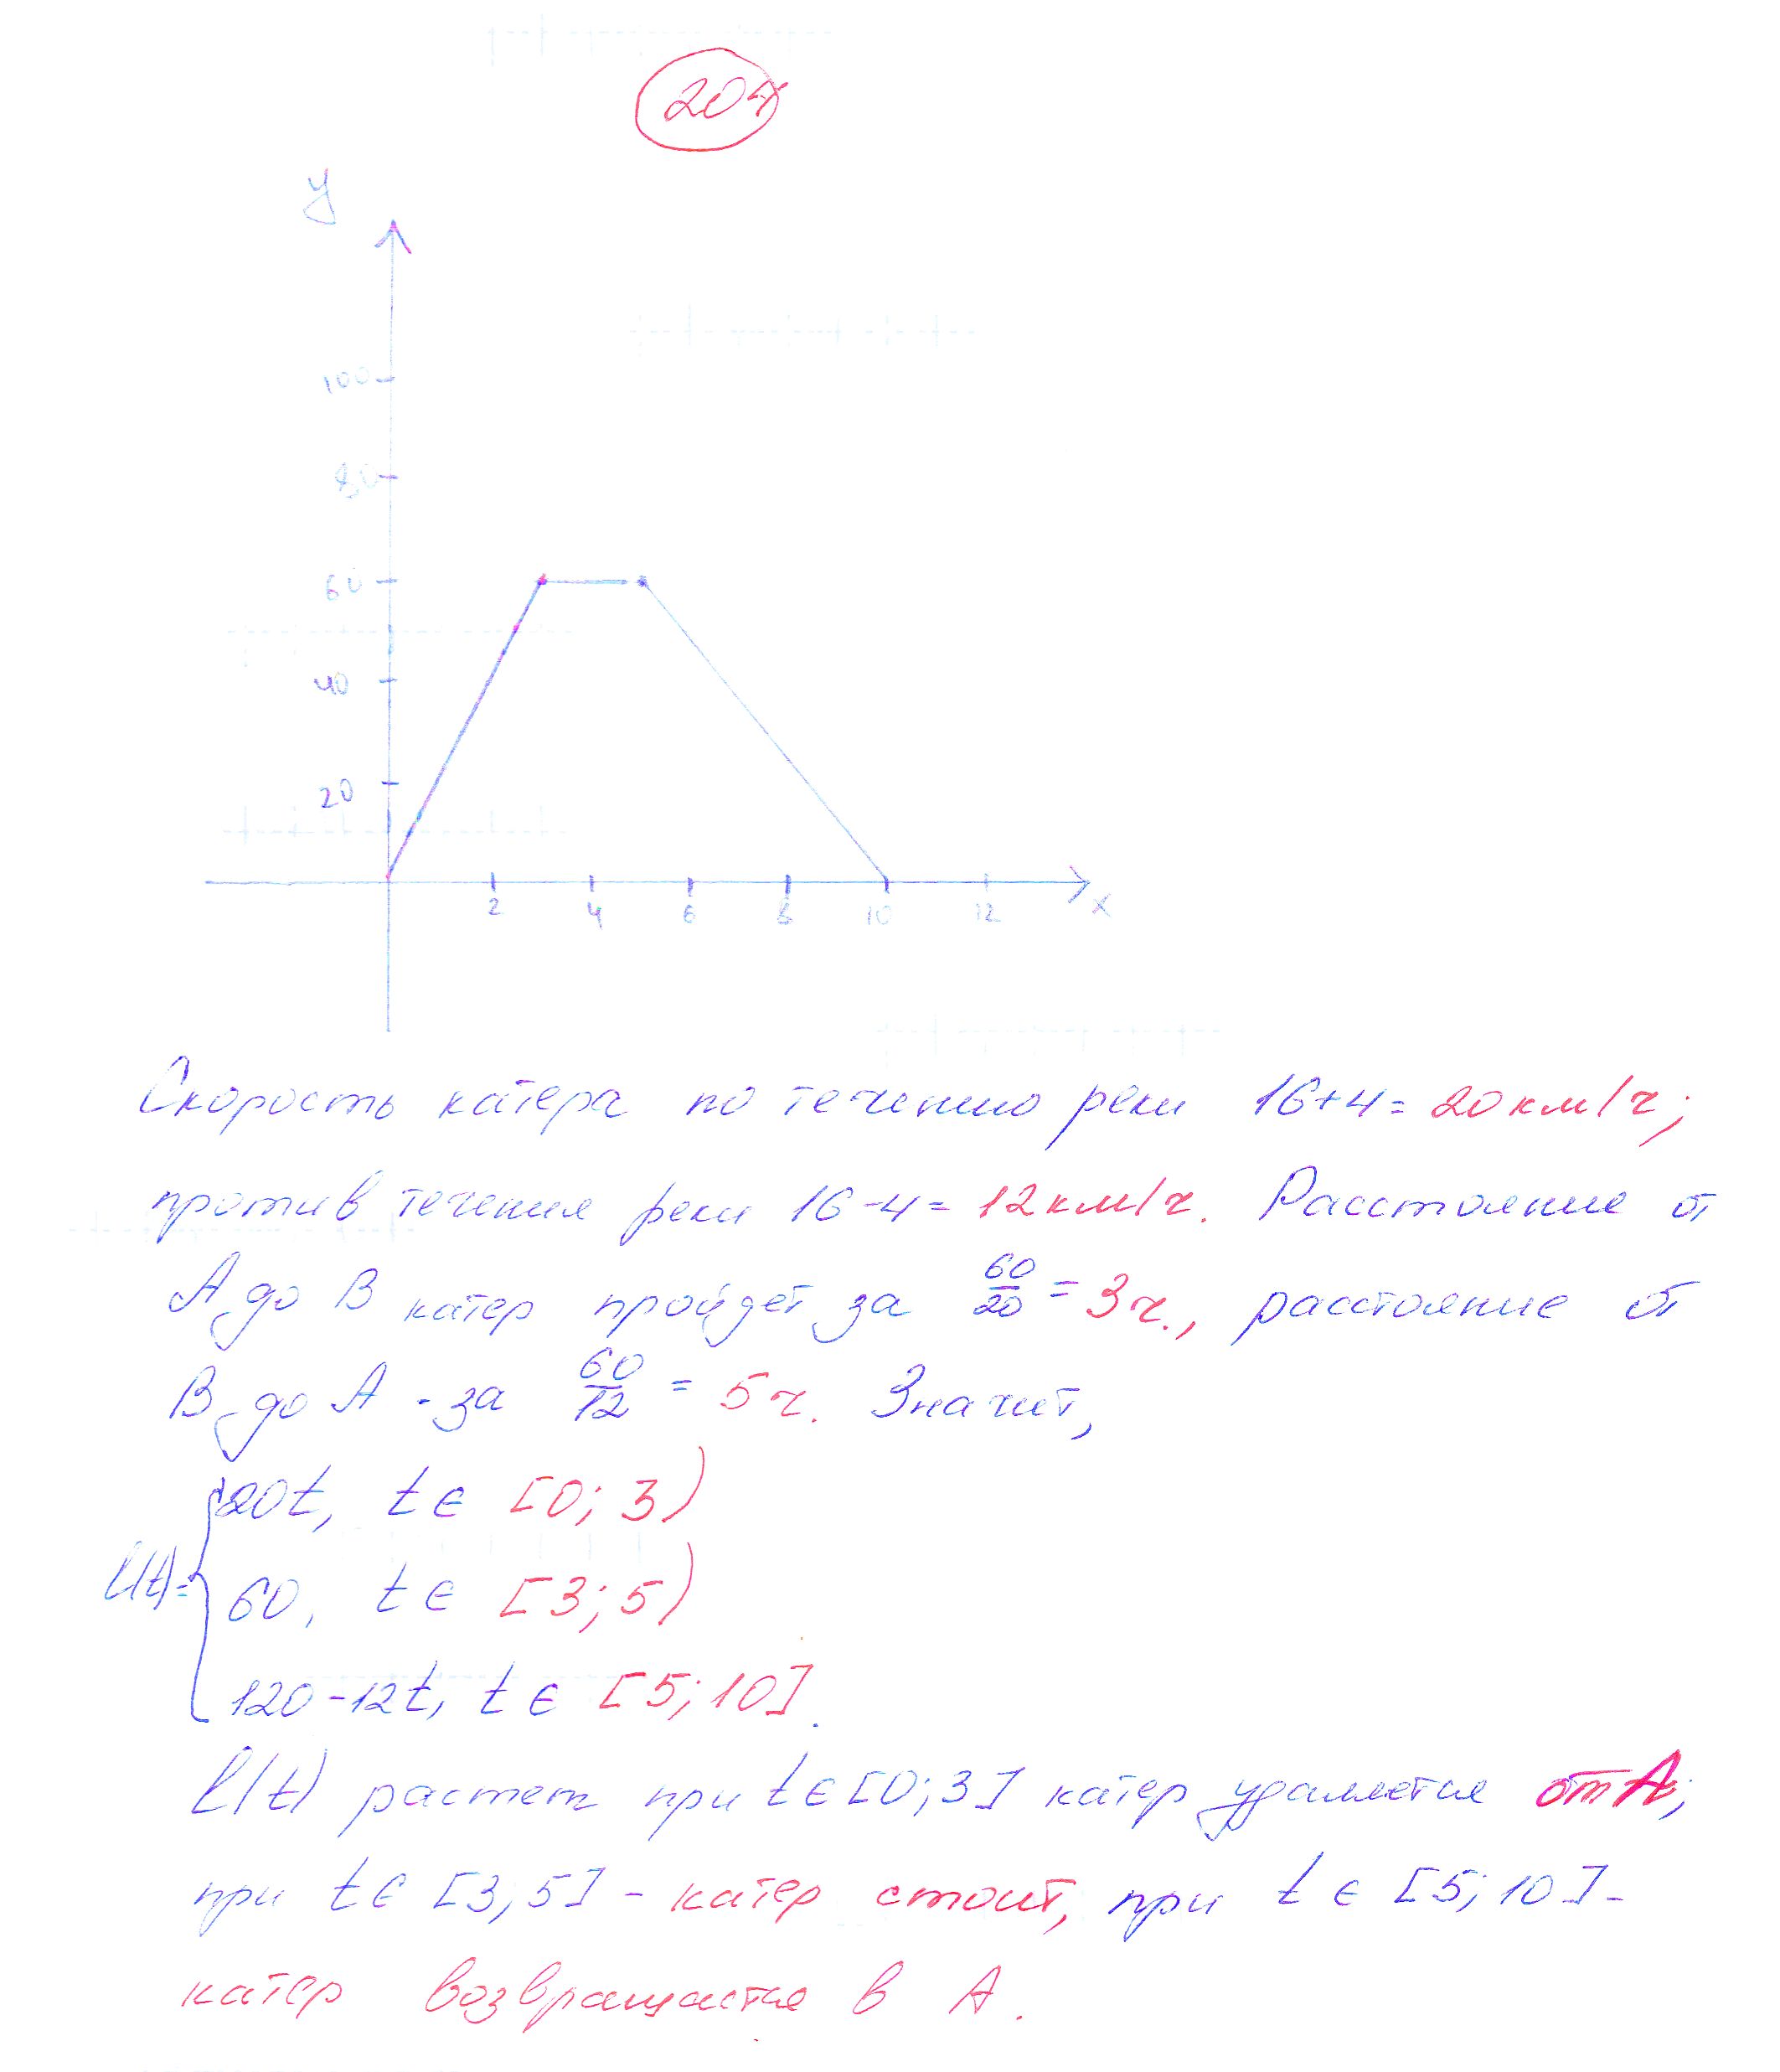 204
y
100
80
60
40
20
2 4 6 8 10 12 x
Скорость катера по течению реки 16+4= 20 км/ч;
против течения реки 16-4= 12 км/ч. Расстояние от
А до В катер пройдет за 60/20 = 3 ч., расстояние от
В до А - за 60/12 = 5 ч. Значит,
20t, t ∈ [0; 3)
l(t)= { 60, t ∈ [3; 5)
120-12t, t ∈ [5; 10].
l(t) растет при t∈[0;3] катер удаляется от А;
при t∈ [3;5] - катер стоит, при t ∈ [5; 10] -
катер возвращается в А.